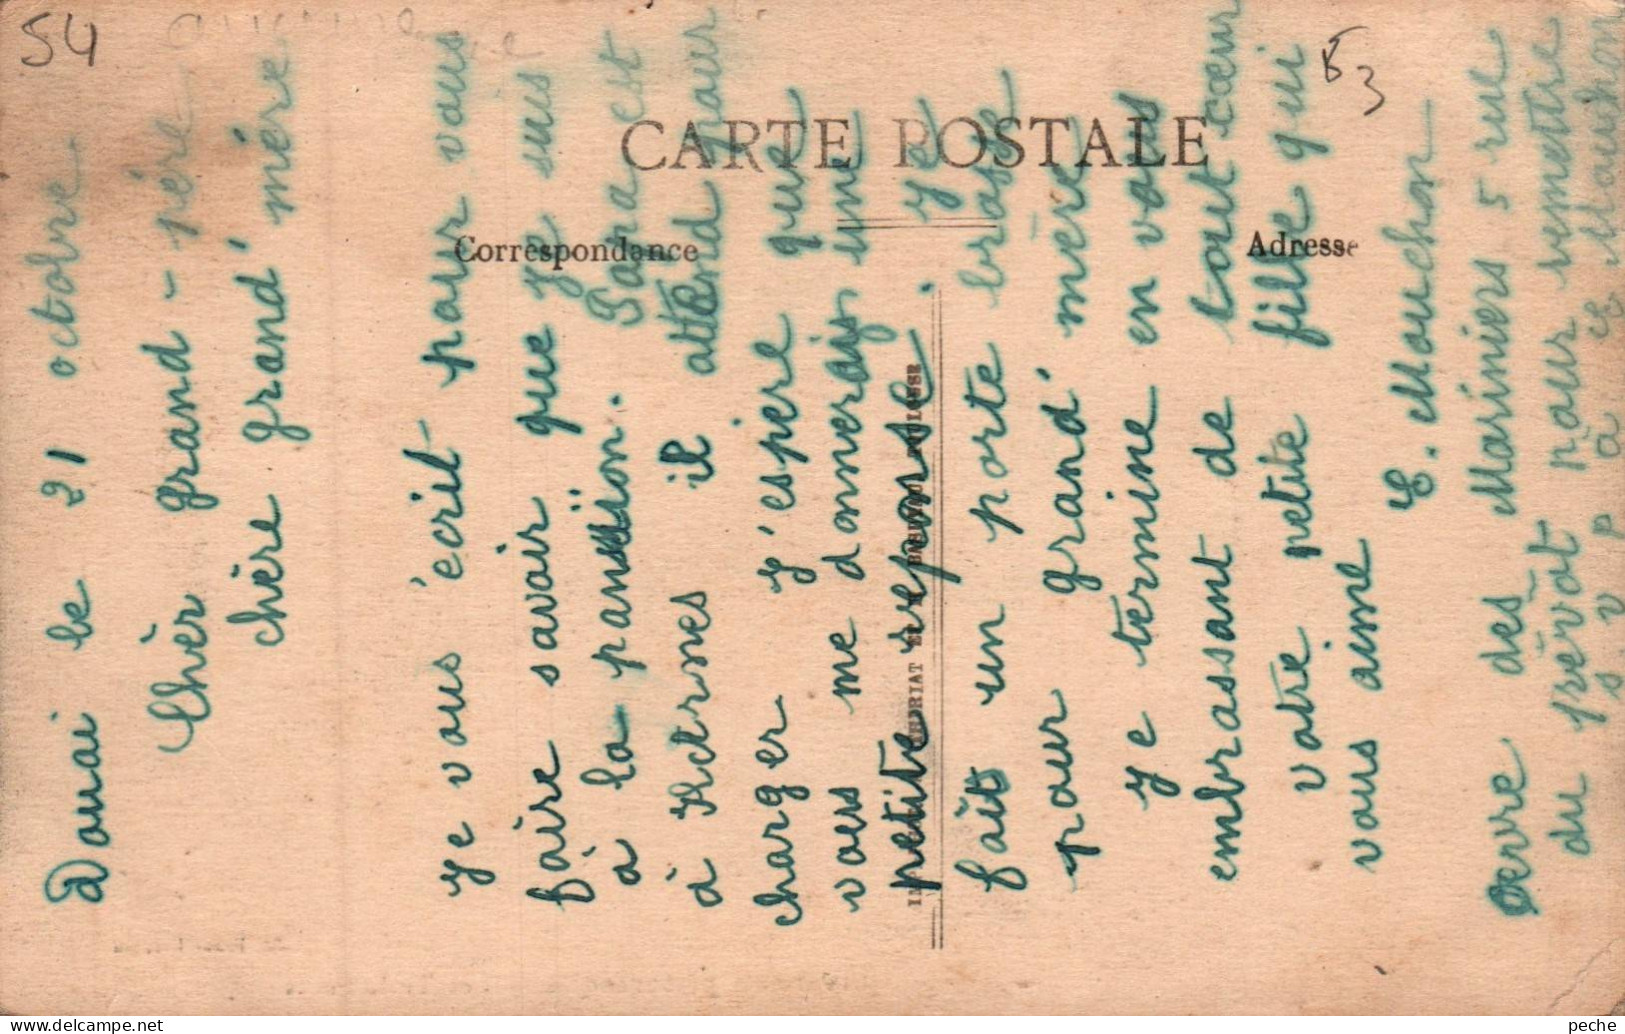 54
53
CARTE POSTALE
Correspondance
Adresse
Douai le 21 octobre
Chèr grand-père
chère grand' mère
ye vous écrit pour vous
faire savoir que ye suis
à la pansion. Papa est
à Hornes il attend pour
charger y'espère que
vous me donnerais une
petite reponse. ye
fait un porte brase
pour grand' mère
ye termine en vous
embrassant de tout cœur
votre petite fille qui
vous aime
E. Mouchon
œuvre des Mariniers 5 rue
du prévot pour remettre
s v p à E Mouchon
peche